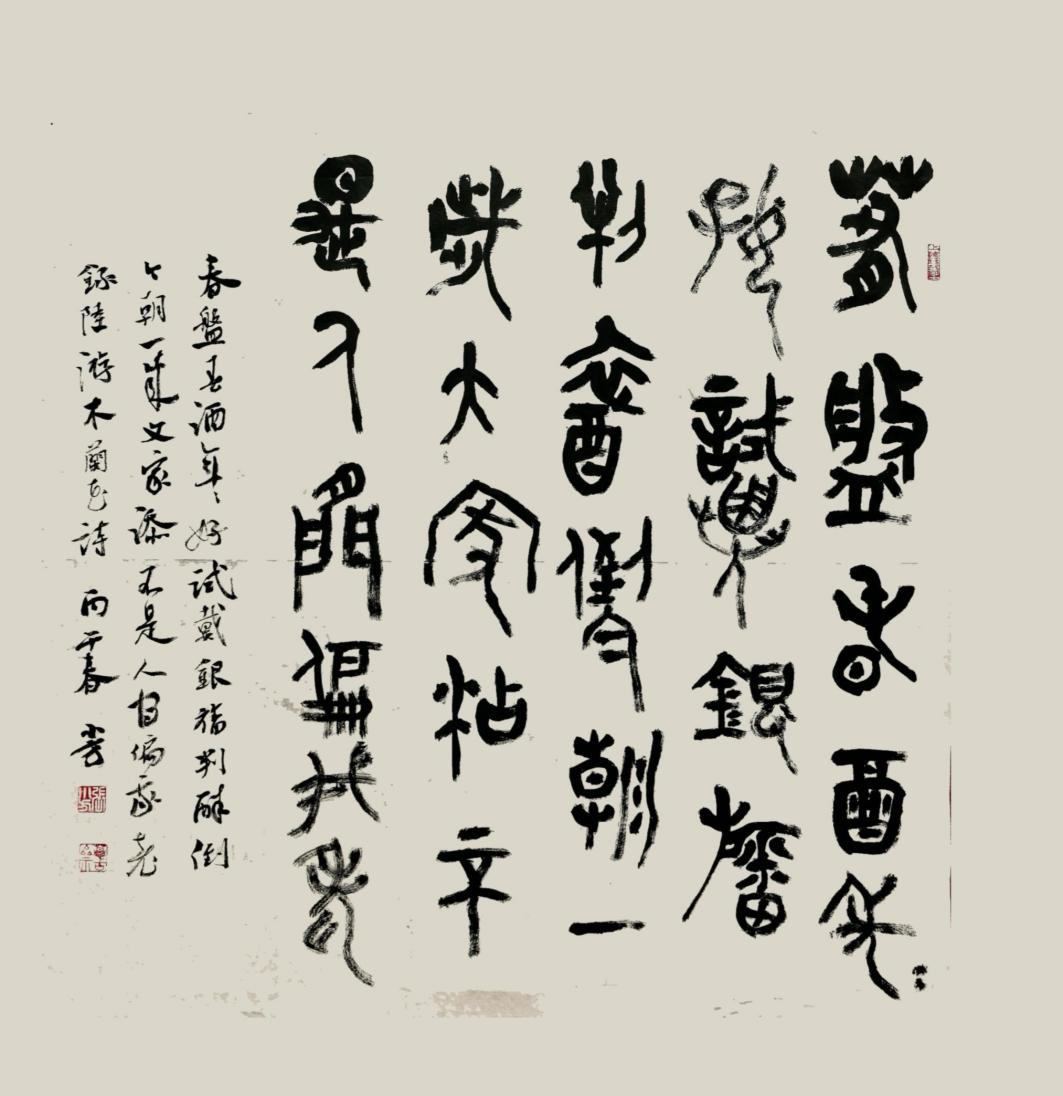 春盤春酒年々
好試戴銀旛
判醉倒今朝一
歲大家添不
是人間偏我老
春盤春酒年々好試戴銀旛判醉倒
今朝一歲大家添不是人間偏我老
錄陸游木蘭花詩 丙申春 小芳